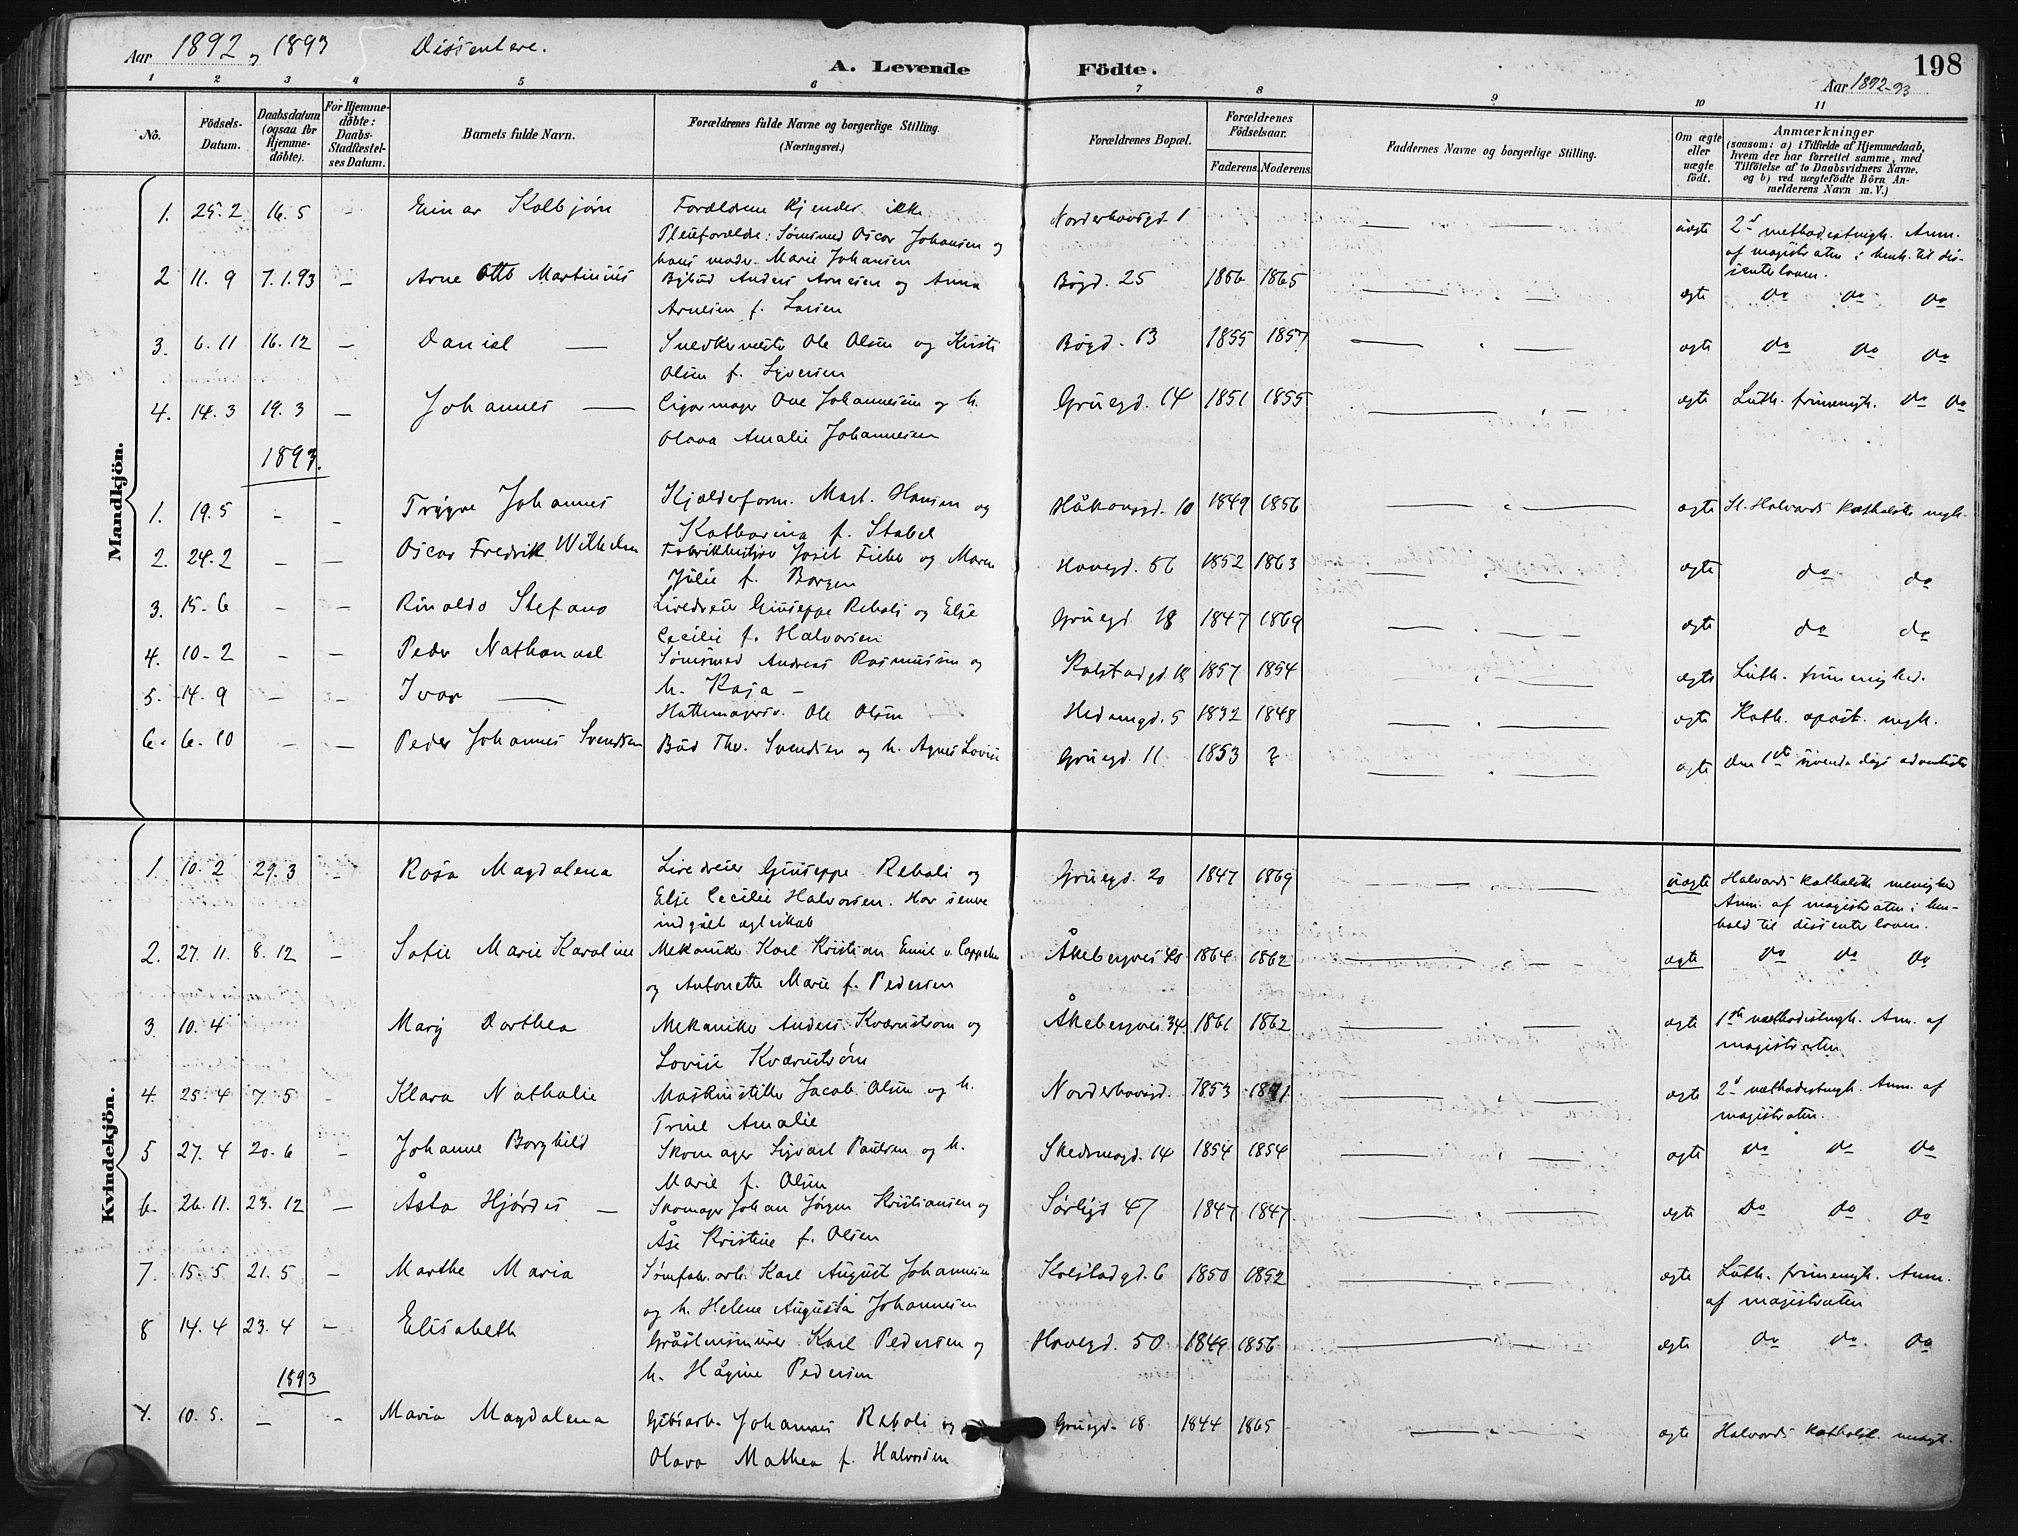 Aar 1892 og 1893 Dissentere.
A. Levende Födte.
198
Aar 1892-93
1 2 3 4 5 6 7 8 9 10 11
No.
Födsels-Datum.
Daabsdatum (ogsaa for Hjemme-döbte).
For Hjemme-döbte: Daabs-Stadfæstel-ses Datum.
Barnets fulde Navn.
Forældrenes fulde Navne og borgerlige Stilling.
(Næringsvei.)
Forældrenes Bopæl.
Forældrenes Födselsaar.
Faderens. Moderens.
Faddernes Navne og borgerlige Stilling.
Om ægte eller uægte födt.
Anmærkninger
(saasom: a) i Tilfælde af Hjemmedaab,
hvem der har forrettet samme, med
Tilföielse af to Daabsvidners Navne.
og b) ved uægtefödte Börn An-
melderens Navn m. V.)
Mandkjön.
1. 25.2 16.5 - Einar Kolbjørn Forældrene kjendes ikke Norderhovsgd. 1 uægte 2d methodistmgh. Anm.
Pleieforældre: Sømsmed Oscar Johansen og af magistraten i henh. til dis-
hans mødr. Marie Johansen senterloven.
2 11.9 7.1.93 - Arne Otto Martinius Bybud Anders Arnesen og Anna Bøgd. 25 1866 1865 ægte do do do
Arnesen f. Larsen
3. 6.11 16.12 - Daniel — Snedkermester Ole Olsen og Kirsti Bøgd. 13 1855 1857 ægte do do do
Olsen f. Syversen
4. 14.3 19.3 - Johannes — Cigarmager Ove Johannesen og h. Gruegd. 14 1851 1855 ægte Luth. frimenigh. do do
Olava Amalie Johannesen
1893.
1. 19.5 - - Trygve Johannes Kjælderform. Magt. Hansen og Håkonsgd. 10 1849 1856 ægte St. Halvards katholske mgh.
Katharina f. Stabel
2. 24.2 - - Oscar Fredrik Wilhelm og Maren Hovegd. 56 1852 1863 ægte do do
Julie f. Borgen
3. 15-6 - - Rinaldo Stefano Liredreier Giuseppe Reboli og Else Gruegd 18 1847 1869 ægte do do
Cecilie f. Halvorsen
4. 10-2 - - Peder Nathanael Sømsmed Andreas Rasmussen og Kolstadgd. 18 1857 1854 ægte Luth. frimenighed.
h. Kaja —
5. 14.9 - - Ivar — Hattemagersv. Ole Olsen Hedemgd. 5 1832 1848 ægte Kath. apost. mgh.
6. 6-10 - - Peder Johannes Svendsen Bud Thv. Svendsen og h. Agnes Lovise Gruegd. 11 1853 ? ægte den 1ste syvende dags adventister
Kvindekjön.
1. 10.2 29.3 - Rosa Magdalena Liredreier Giuseppe Reboli og Gruegd. 20 1847 1869 uægte Halvards katholske menighed
Else Cecilie Halvorsen. Har senere Anm. af magistraten i hen-
indgået ægteskab hold til dissenterloven.
2. 27.11. 8.12 - Sofie Marie Karoline Mekaniker Karl Kristian Emil v. Cappelen Åkebergvei 1864 1862 ægte do do do
og Antonette Marie f. Pedersen
3. 10.4 Mary Dorthea Mekaniker Anders Kværnstrøm og Åkebergvei 34 1861 1862 ægte 1ste methodistmgh. Anm. af
Lovise Kværnstrøm magistraten
4. 25.4 7.5 - Klara Nathalie Maskinstiller Jacob Olsen og h. Norderhovsgd. 1853 1871 ægte 2d methodistmgh. Anm. af
Trine Amalie magistraten.
5 27.4 20.6 - Johanne Borghild Skomager Sigvart Paulsen og h. Skedsmogd. 14 1854 1854 ægte do do do
Marie f. Olsen
6. 26.11. 23.12 - Åsta Hjørdis — Skomager Johan Jørgen Kristiansen og Sørligt 47 1847 1847 ægte do do do
Åse Kristine f. Olsen
7. 15.5 21.5 - Marthe Maria Sømfabr. arb. Karl August Johannesen Kolstadgd. 6 1850 1852 ægte Luth. frimenigh. Anm.
og h. Helene Augusta Johannesen af magistraten
8 14.4 23.4 - Elisabeth Gråstensmurer Karl Pedersen og Hovegd. 50 1849 1856 ægte do do. do
h. Hågine Pedersen
1893
1. 10.5. - - Maria Magdalena Gibsarb. Johannes Reboli og Gruegd. 18 1844 1865 ægte Halvards katholsk. mengh.
Olava Mathea f. Halvorsen